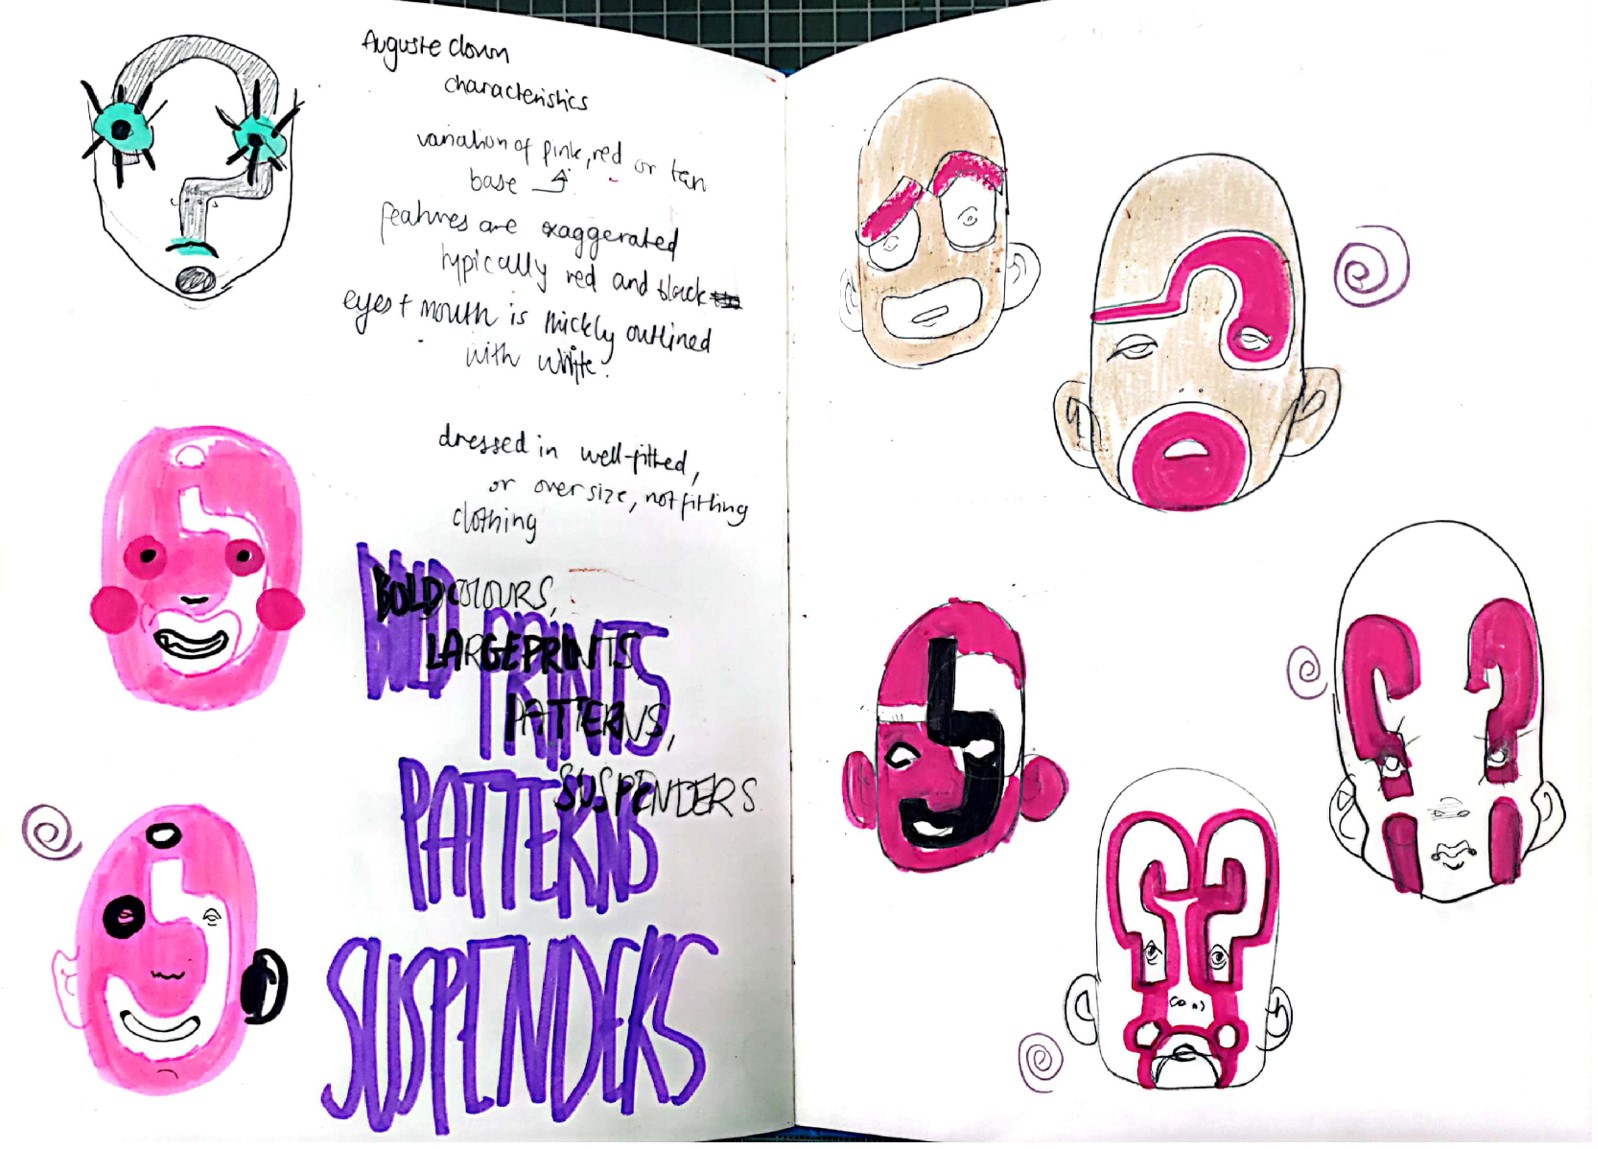 Auguste clown
characteristics
variation of pink, red or tan
base
features are exaggerated
typically red and black
eyes + mouth is thickly outlined
with white.
dressed in well-fitted,
or oversize, not fitting
clothing
BOLD COLOURS,
LARGE PRINTS
PATTERNS,
SUSPENDERS
BOLD PRINTS
PATTERNS
SUSPENDERS